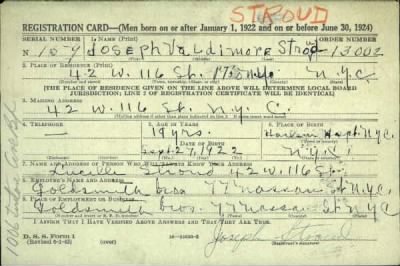 STROUD
REGISTRATION CARD—(Men born on or after January 1, 1922 and on or before June 30, 1924)
SERIAL NUMBER 1. NAME (Print) ORDER NUMBER
N Joseph Valdimore Stroud 13002
2. PLACE OF RESIDENCE (Print)
42 W. 116 St. N.Y.C.
[THE PLACE OF RESIDENCE GIVEN ON THE LINE ABOVE WILL DETERMINE LOCAL BOARD
JURISDICTION; LINE 2 OF REGISTRATION CERTIFICATE WILL BE IDENTICAL]
3. MAILING ADDRESS
42 W. 116 St. N.Y.C.
4. TELEPHONE 5. AGE IN YEARS 6. PLACE OF BIRTH
— 19 yrs. Harlem Hospt N.Y.C.
DATE OF BIRTH
Sept. 27, 1922 N.Y.
7. NAME AND ADDRESS OF PERSON WHO WILL ALWAYS KNOW YOUR ADDRESS
Lucille Stroud 42 W. 116 St.
8. EMPLOYER'S NAME AND ADDRESS
Goldsmith bros 77 Nassau St N.Y.C.
9. PLACE OF EMPLOYMENT OR BUSINESS
Goldsmith bros. 77 Nassau St N.Y.C
I AFFIRM THAT I HAVE VERIFIED ABOVE ANSWERS AND THAT THEY ARE TRUE.
D. S. S. Form 1
(Revised 6-1-42) (over)
Joseph Stroud